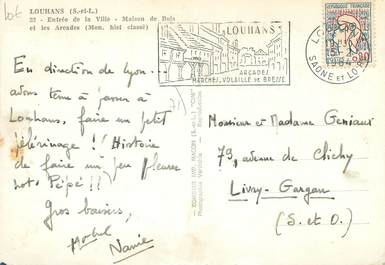 lot
LOUHANS (S.-et-L.)
22 - Entrée de la Ville - Maison de Bois
et les Arcades (Mon. hist classé)
LOUHANS
ARCADES
MARCHÉS, VOLAILLE DE BRESSE
SAONE ET LOIRE
REPUBLIQUE FRANÇAISE
En direction de Lyon....
avons tenu à passer à
Louhans, faire un petit
pélerinage ! Histoire
de faire un peu pleurer
not' Pépé !!
Gros baisers,
Nanie
Monsieur et Madame Geniaux
79, avenue de Clichy
Livry-Gargan
(S. et O.)